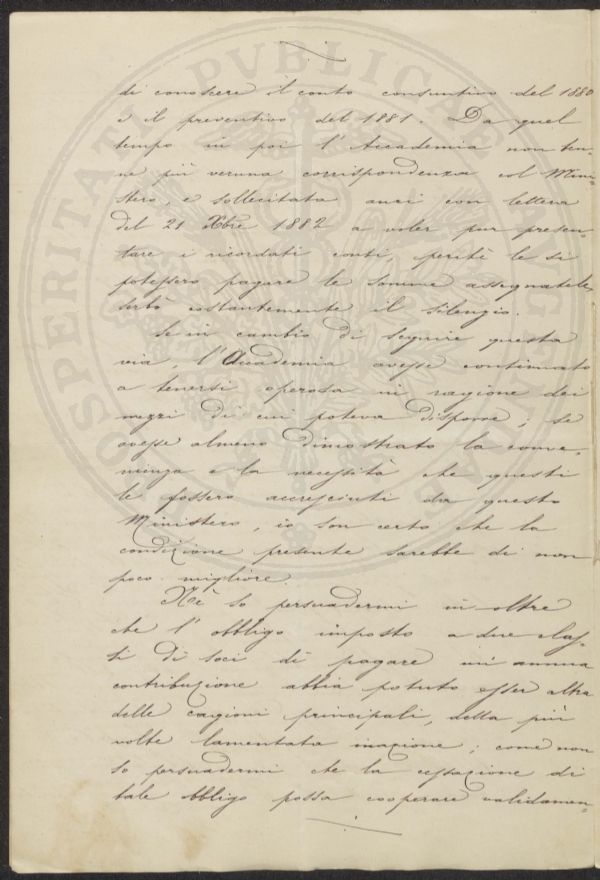 di conoscere il conto consuntivo del 1880
e il preventivo del 1881. Da quel
tempo in poi l'Accademia non ten-
ne più veruna corrispondenza col Mini-
stero, e sollecitata anzi con lettera
del 21 Xbre 1882 a voler pur presen-
tare i ricordati conti, perchè le si
potessero pagare le somme assegnatele
serbò costantemente il silenzio.
Se in cambio di seguire questa
via, l'Accademia avesse continuato
a tenersi operosa in ragione dei
mezzi di cui poteva disporre; se
avesse almeno dimostrato la conve-
nienza e la necessità che questi
le fossero accresciuti da questo
Ministero, io son certo che la
condizione presente sarebbe di non
poco migliore.
Nè so persuadermi in oltre
che l'obbligo imposto a due clas-
si di soci di pagare un'annua
contribuzione abbia potuto esser altra
delle cagioni principali, della più
volte lamentata inazione; come non
so persuadermi che la cessazione di
tale obbligo possa cooperare validamen-
PVBLICAE
PROSPERITATI
AVGENDAE